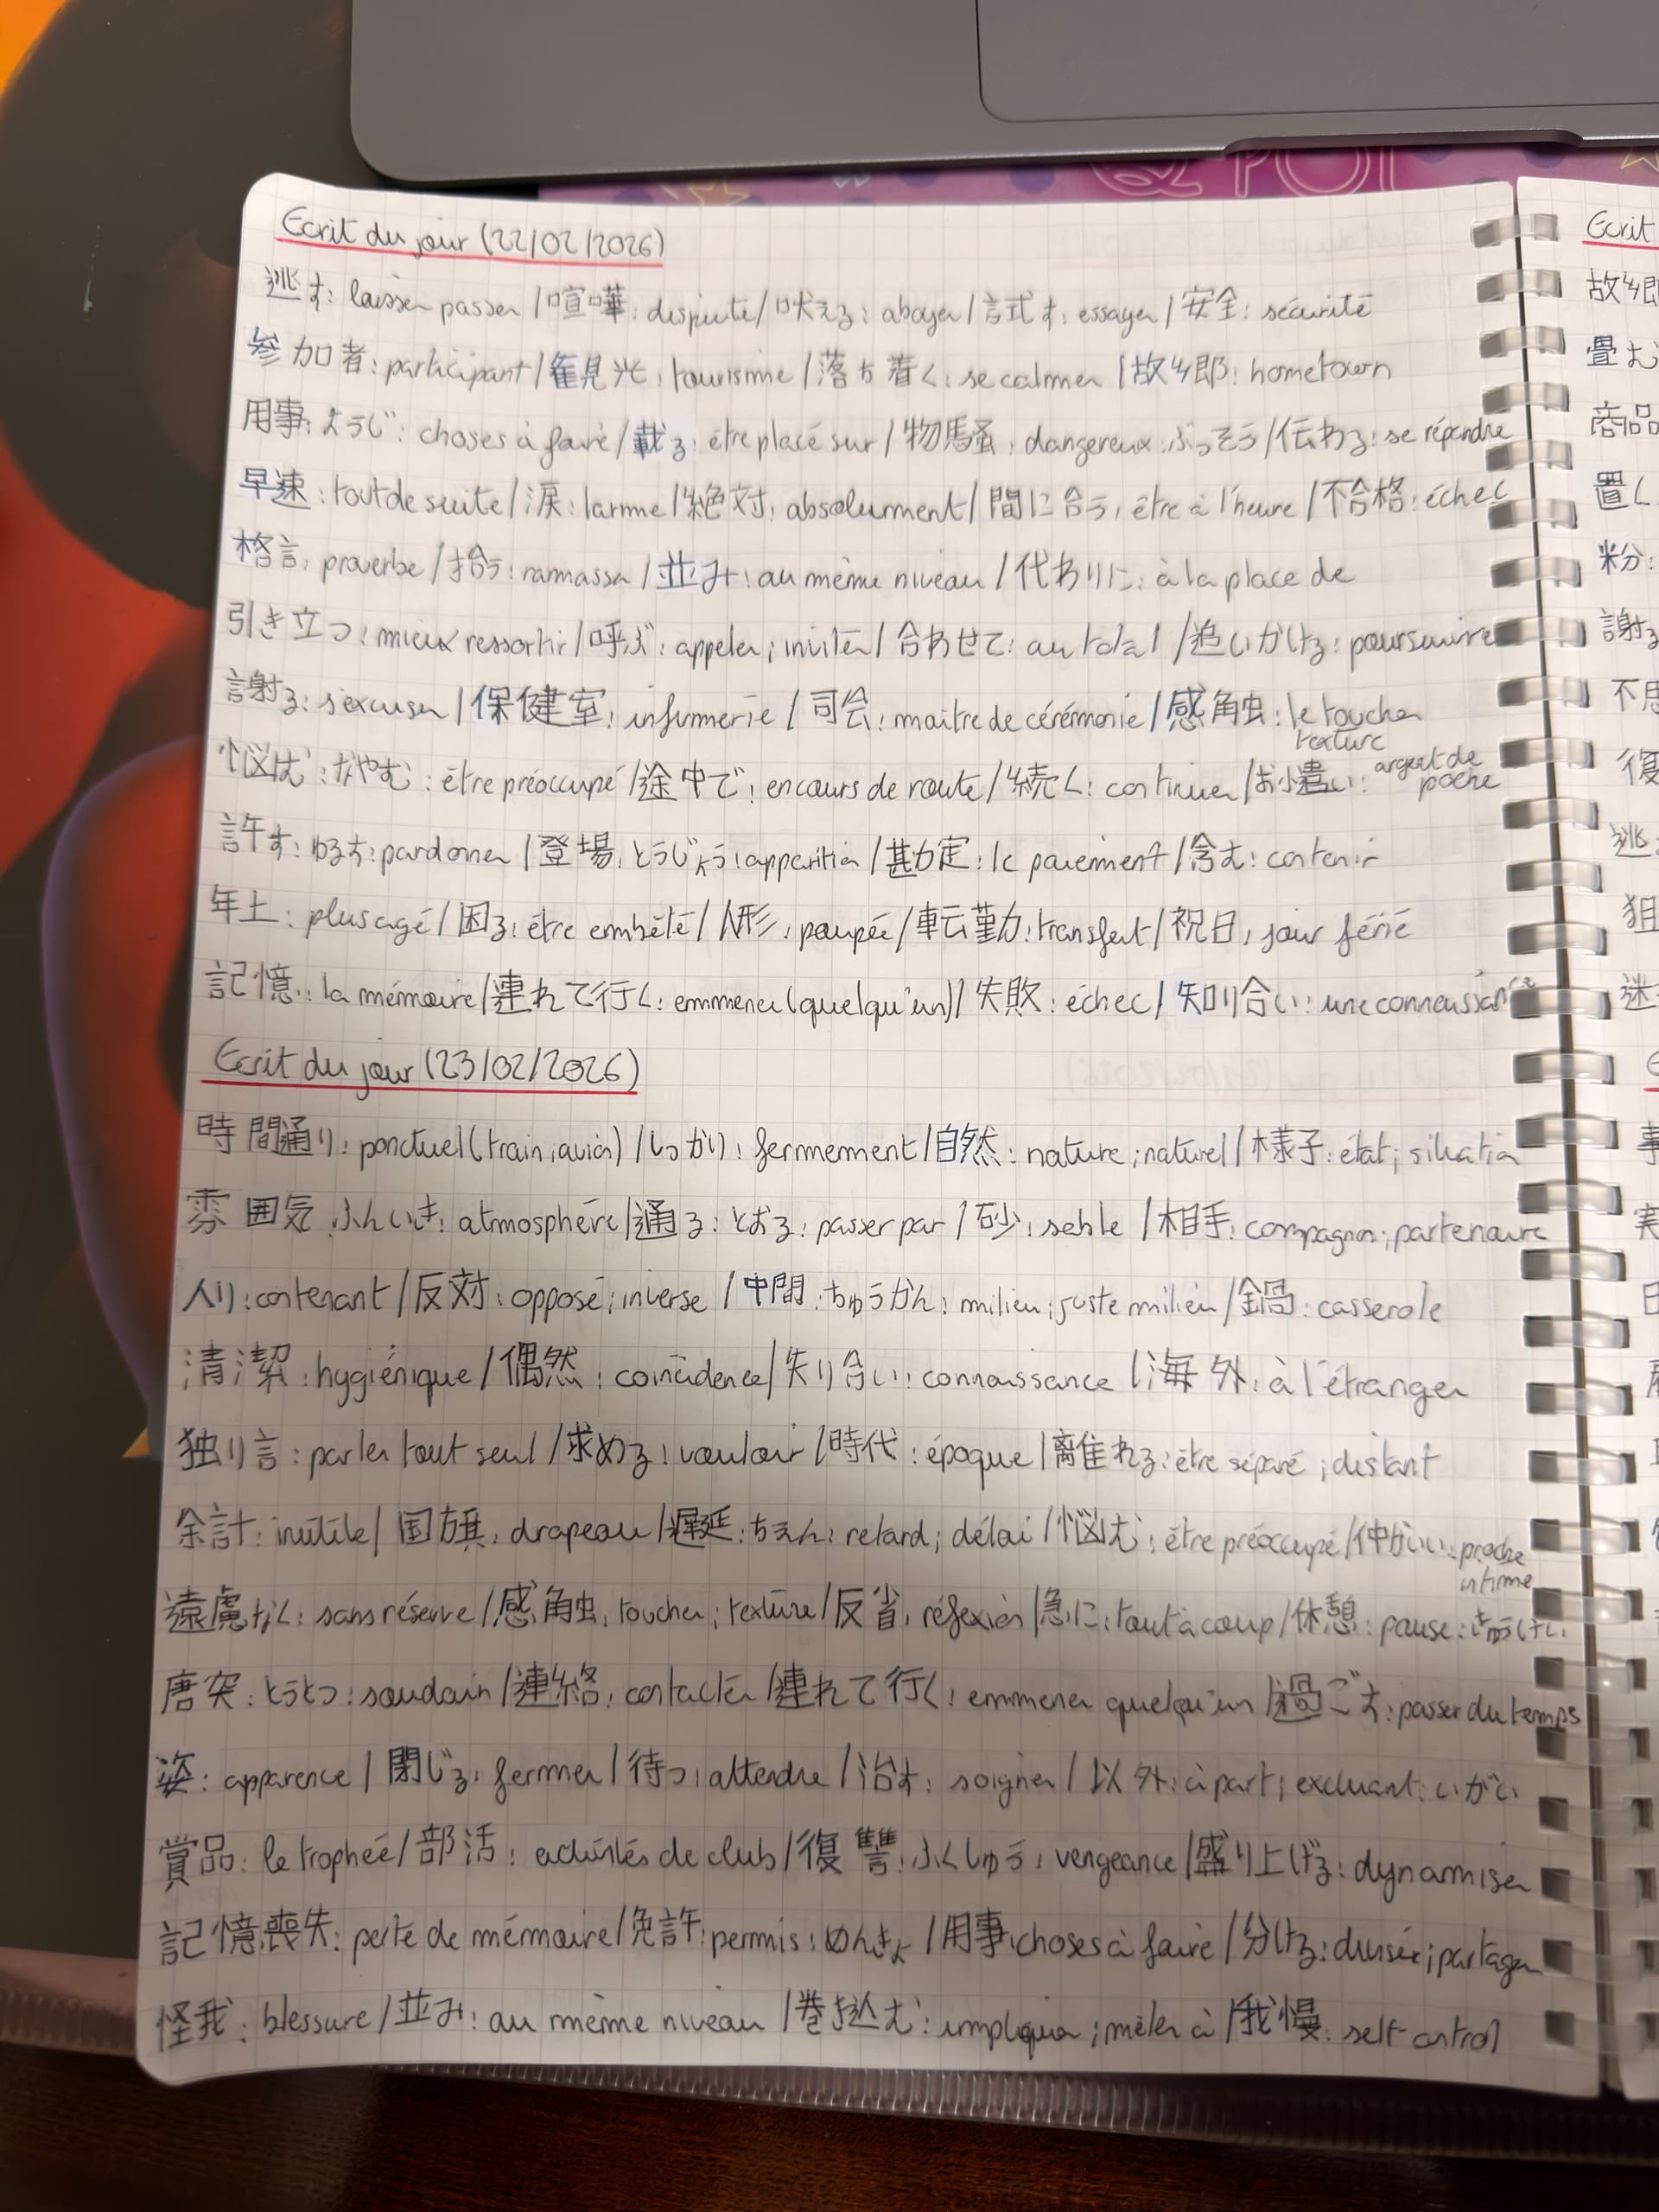 Q-POT
Ecrit du jour (22/02/2026)
逃す: laisser passer / 喧嘩: dispute / 吠える: aboyer / 試す: essayer / 安全: sécurité
参加者: participant / 観光: tourisme / 落ち着く: se calmer / 故郷: hometown
用事: ようじ: choses à faire / 載る: être placé sur / 物騒: dangereux: ぶっそう / 伝わる: se répendre
早速: tout de suite / 涙: larme / 絶対: absolument / 間に合う: être à l'heure / 不合格: échec
格言: proverbe / 拾う: ramasser / 並み: au même niveau / 代わりに: à la place de
引き立つ: mieux ressortir / 呼ぶ: appeler; inviter / 合わせて: au total / 追いかける: poursuivre
謝る: s'excuser / 保健室: infirmerie / 司会: maitre de cérémonie / 感触: le toucher texture
悩む: なやむ: être préoccupé / 途中で: en cours de route / 続く: continuer / お小遣い: argent de poche
許す: ゆるす: pardonner / 登場: とうじょう: apparition / 勘定: le paiement / 含む: contenir
年上: plus agé / 困る: être embêté / 人形: poupée / 転勤: transfert / 祝日: jour férié
記憶: la mémoire / 連れて行く: emmener (quelqu'un) / 失敗: échec / 知り合い: une connaissance
Ecrit du jour (23/02/2026)
時間通り: ponctuel (train; avion) / しっかり: fermement / 自然: nature; naturel / 様子: état; situation
雰囲気: ふんいき: atmosphère / 通る: とおる: passer par / 砂: sable / 相手: compagnon; partenaire
入り: contenant / 反対: opposé; inverse / 中間: ちゅうかん: milieu; juste milieu / 鍋: casserole
清潔: hygiénique / 偶然: coïncidence / 失り合い: connaissance / 海外: à l'étranger
独り言: parler tout seul / 求める: vouloir / 時代: époque / 離れる: être séparé; distant
余計: inutile / 国旗: drapeau / 遅延: ちえん: retard; délai / 悩む: être préoccupé / 仲がいい: proche intime
遠慮なく: sans réserve / 感触: toucher; texture / 反省: réflexion / 急に: tout à coup / 休憩: pause: きゅうけい
唐突: とうとつ: soudain / 連絡: contacter / 連れて行く: emmener quelqu'un / 過ごす: passer du temps
姿: apparence / 閉じる: fermer / 待つ: attendre / 治す: soigner / 以外: à part; excluant: いがい
賞品: le trophée / 部活: activités de club / 復讐: ふくしゅう: vengeance / 盛り上げる: dynamiser
記憶喪失: perte de mémoire / 免許: permis: めんきょ / 用事: choses à faire / 分ける: diviser; partager
怪我: blessure / 並み: au même niveau / 巻き込む: impliquer; mêler à / 我慢: self-control
Ecrit
故郷
畳む
商品
置く
粉:
謝る